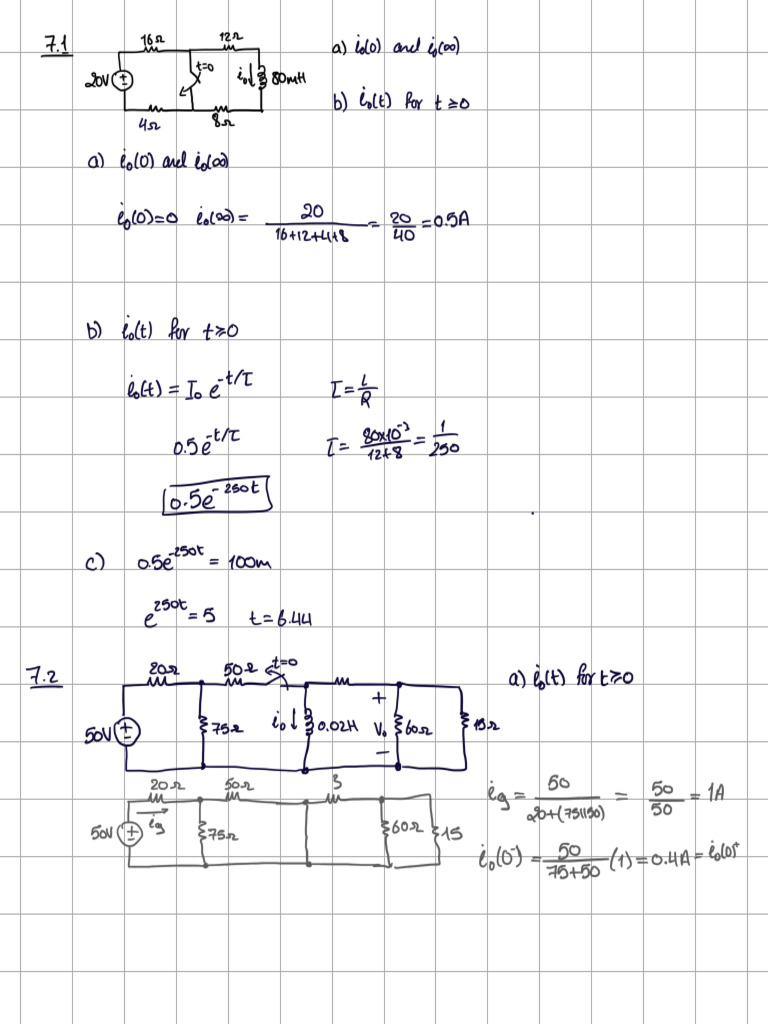 7.1
16Ω 12Ω
20V t=0 i₀↓ 80mH
4Ω 8Ω
a) i₀(0) and i₀(∞)
b) i₀(t) for t≥0
a) i₀(0) and i₀(∞)
i₀(0)=0 i₀(∞) = 20/(16+12+4+8) = 20/40 = 0.5A
b) i₀(t) for t≥0
i₀(t) = I₀ e^(-t/τ) τ = L/R
0.5e^(-t/τ) τ = (80x10^-3)/(12+8) = 1/250
0.5e^(-250t)
c) 0.5e^(-250t) = 100m
e^(250t) = 5 t = 6.44
7.2
20Ω 50Ω t=0
50V 75Ω i₀↓ 0.02H + V₀ − 60Ω 15Ω
a) i₀(t) for t≥0
20Ω 50Ω 3
50V ig 75Ω 60Ω 15
ig = 50/(20+(75||50)) = 50/50 = 1A
i₀(0⁻) = 50/(75+50) (1) = 0.4A = i₀(0)⁺